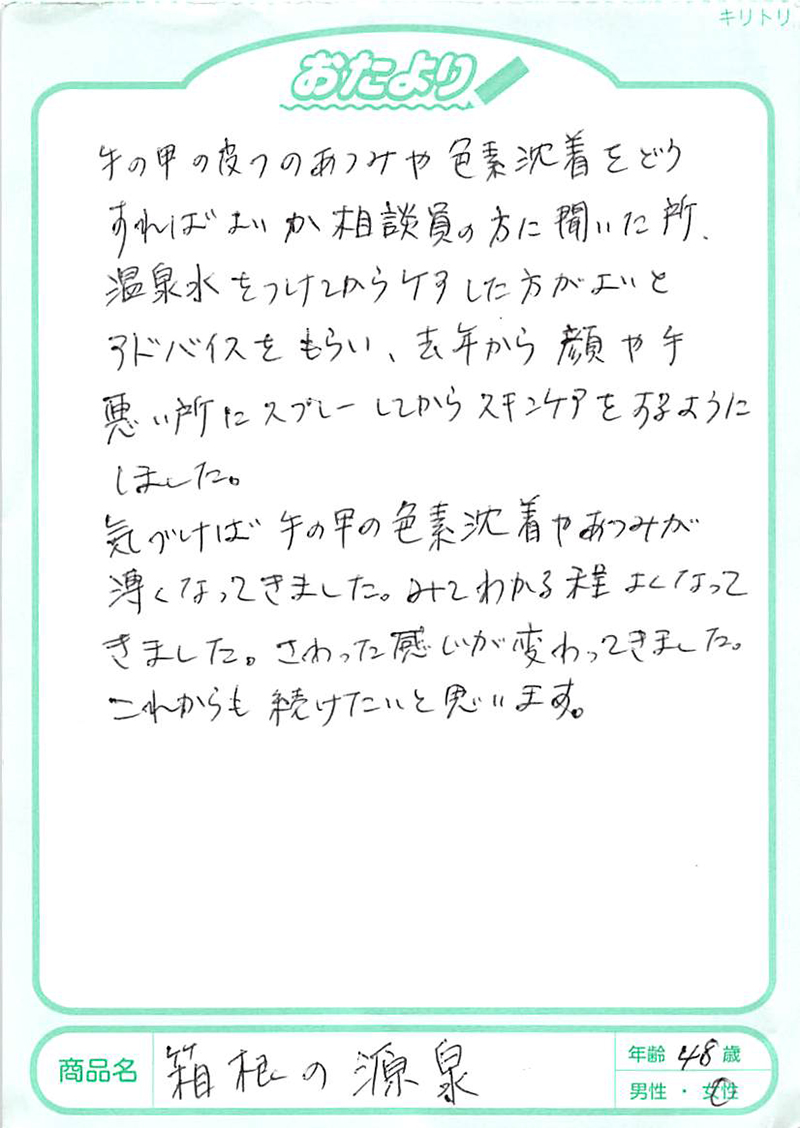 キリトリ
おたより
手の甲の皮フのあつみや色素沈着をどう
すればよいか相談員の方に聞いた所、
温泉水をつけてからケアした方がよいと
アドバイスをもらい、去年から顔や手
悪い所にスプレーしてからスキンケアをするように
しました。
気づけば手の甲の色素沈着やあつみが
薄くなってきました。みてわかる程よくなって
きました。さわった感じが変わってきました。
これからも続けたいと思います。
商品名 箱根の源泉
年齢 48 歳
男性・女性